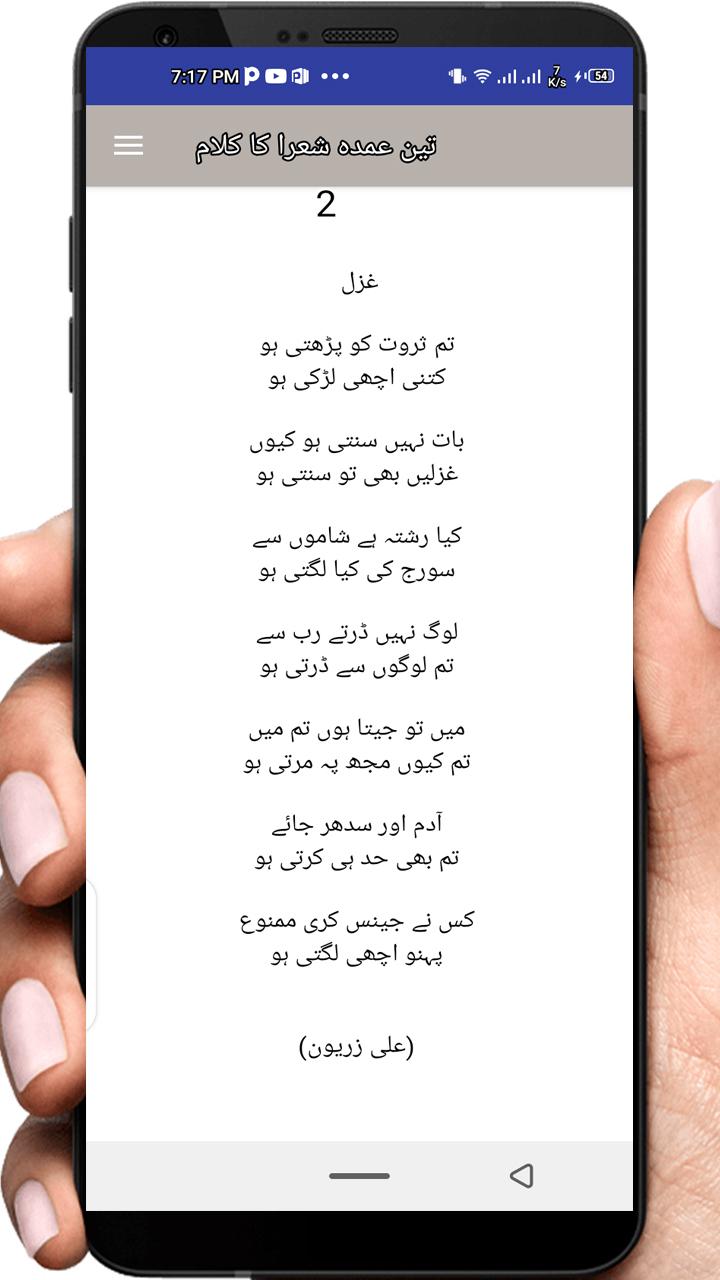 7:17 PM
7
K/s
54
تین عمدہ شعرا کا کلام
2
غزل
تم ثروت کو پڑھتی ہو
کتنی اچھی لڑکی ہو
بات نہیں سنتی ہو کیوں
غزلیں بھی تو سنتی ہو
کیا رشتہ ہے شاموں سے
سورج کی کیا لگتی ہو
لوگ نہیں ڈرتے رب سے
تم لوگوں سے ڈرتی ہو
میں تو جیتا ہوں تم میں
تم کیوں مجھ پہ مرتی ہو
آدم اور سدھر جائے
تم بھی حد ہی کرتی ہو
کس نے جینس کری ممنوع
پہنو اچھی لگتی ہو
(علی زریون)